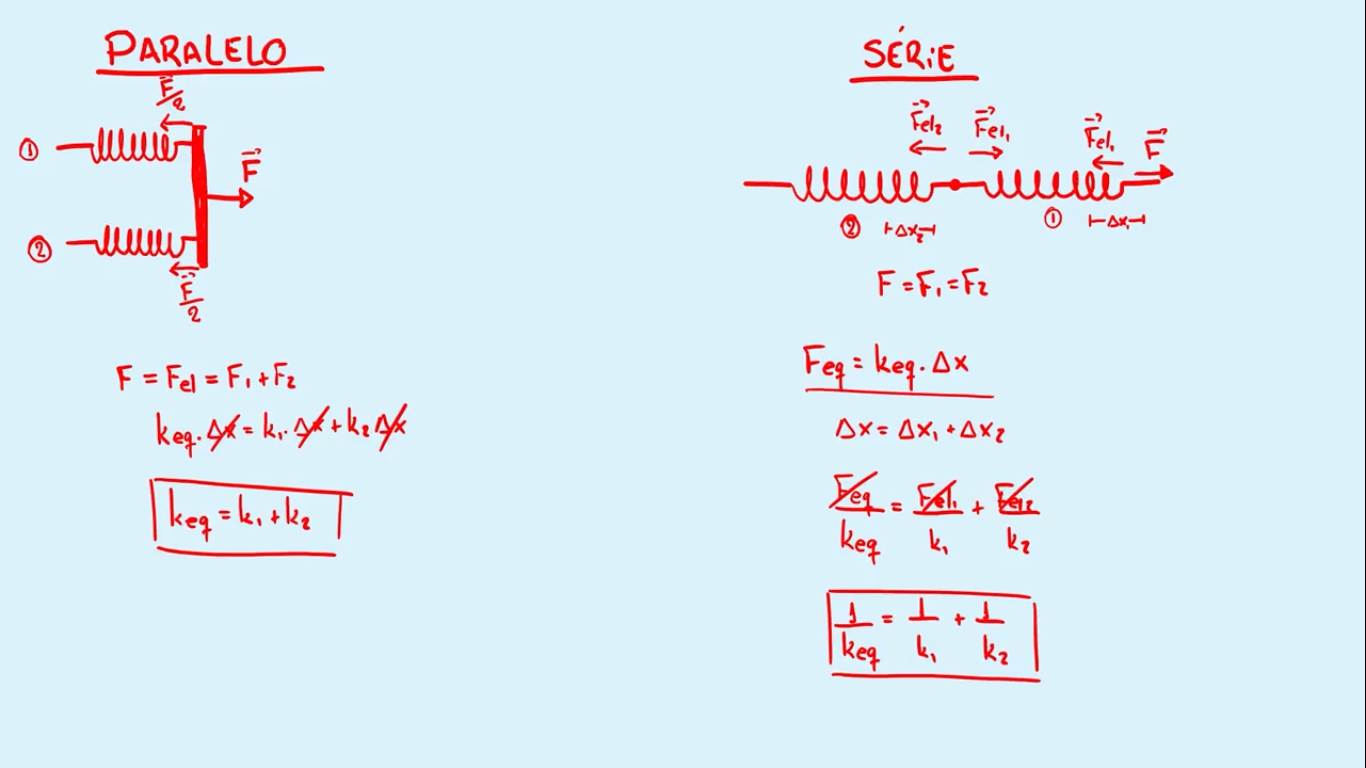 PARALELO
F⃗/2
①
F⃗
②
F⃗/2
F = Fel = F₁ + F₂
keq. Δx = k₁. Δx + k₂ Δx
keq = k₁ + k₂
SÉRiE
F⃗el₂ F⃗el₁ F⃗el₁ F⃗
② Δx₂ ① Δx₁
F = F₁ = F₂
Feq = keq. Δx
Δx = Δx₁ + Δx₂
Feq/keq = Fel₁/k₁ + Fel₂/k₂
1/keq = 1/k₁ + 1/k₂